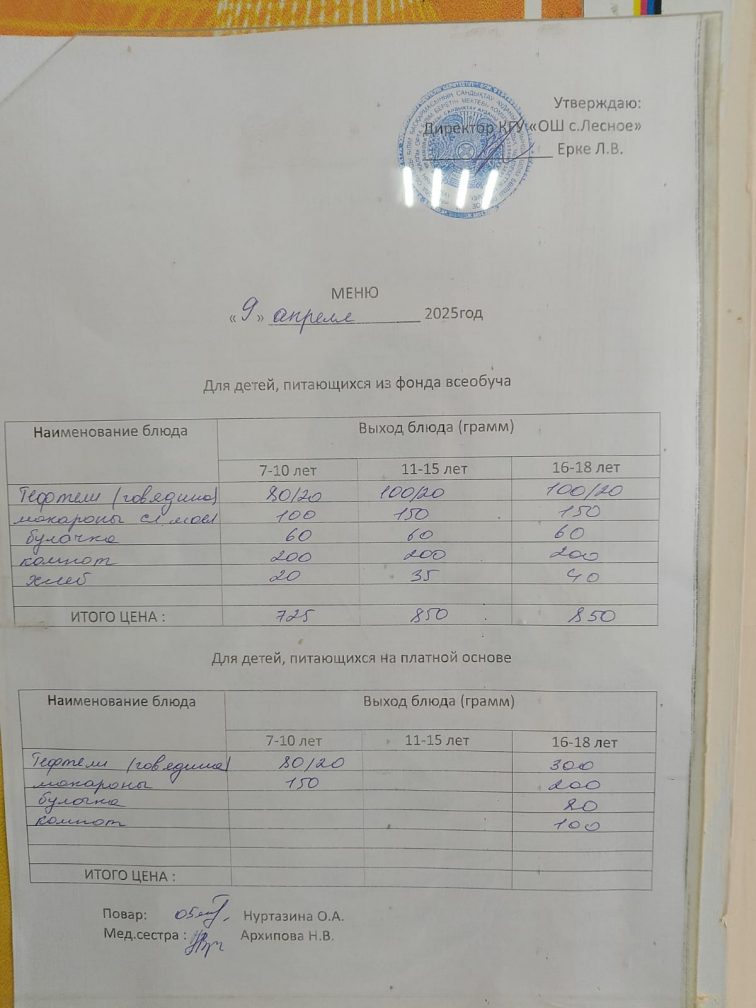 Утверждаю:
Директор КГУ «ОШ с.Лесное»
Ерке Л.В.
МЕНЮ
«9» апреля 2025год
Для детей, питающихся из фонда всеобуча
Наименование блюда Выход блюда (грамм)
7-10 лет 11-15 лет 16-18 лет
Тефтели (говядина) 80/20 100/20 100/20
макароны сл.масл 100 150 150
булочка 60 60 60
компот 200 200 200
хлеб 20 35 40
ИТОГО ЦЕНА : 725 850 850
Для детей, питающихся на платной основе
Наименование блюда Выход блюда (грамм)
7-10 лет 11-15 лет 16-18 лет
Тефтели (говядина) 80/20 300
макароны 150 200
булочка 80
компот 100
ИТОГО ЦЕНА :
Повар: Нуртазина О.А.
Мед.сестра : Архипова Н.В.